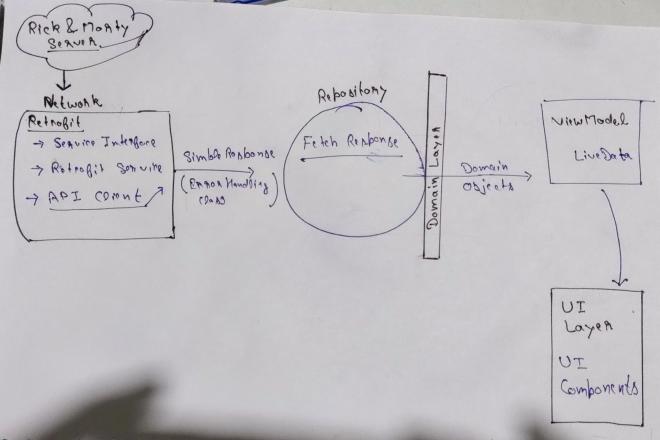 Rick & Morty
Server
Network
Retrofit
→ Service Interface
→ Retrofit Service
→ API Client
Simple Response
(Error Handling
class)
Repository
Fetch Response
Domain Layer
Domain
Objects
ViewModel
LiveData
UI
Layer
UI
Components